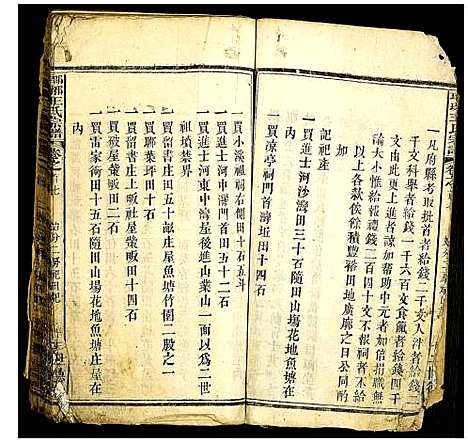 一凡府縣考取批首者給錢二千文入泮者給錢二
千文科舉者給錢一千六百文食廩者給錢四千
文由此更上進者諒加帮助中元者
論大小惟給報禮錢二百四十文不報祠者不
以上各款俟餘積豐裕田地廣廓之日公同酌
加
記祀產
一買進士河沙灣田三十石隨田山塲花地魚塘在內
一買涼亭祠門首灣坵田十四石
一買小溪祖祠右側田十石五斗
一買進士河中灣門首田五十二石
一買進士河東中灣屋後進山業山一面以爲二世
祖墳禁界
一買留書庄田六十石庄屋魚塘竹園二股之一
一買留書庄上畈社屋塋畈田十四石
一買聯葉坪田十石
一買破屋塋畈田二石
一買雷家衖田十五石隨田山塲花地魚塘庄屋在